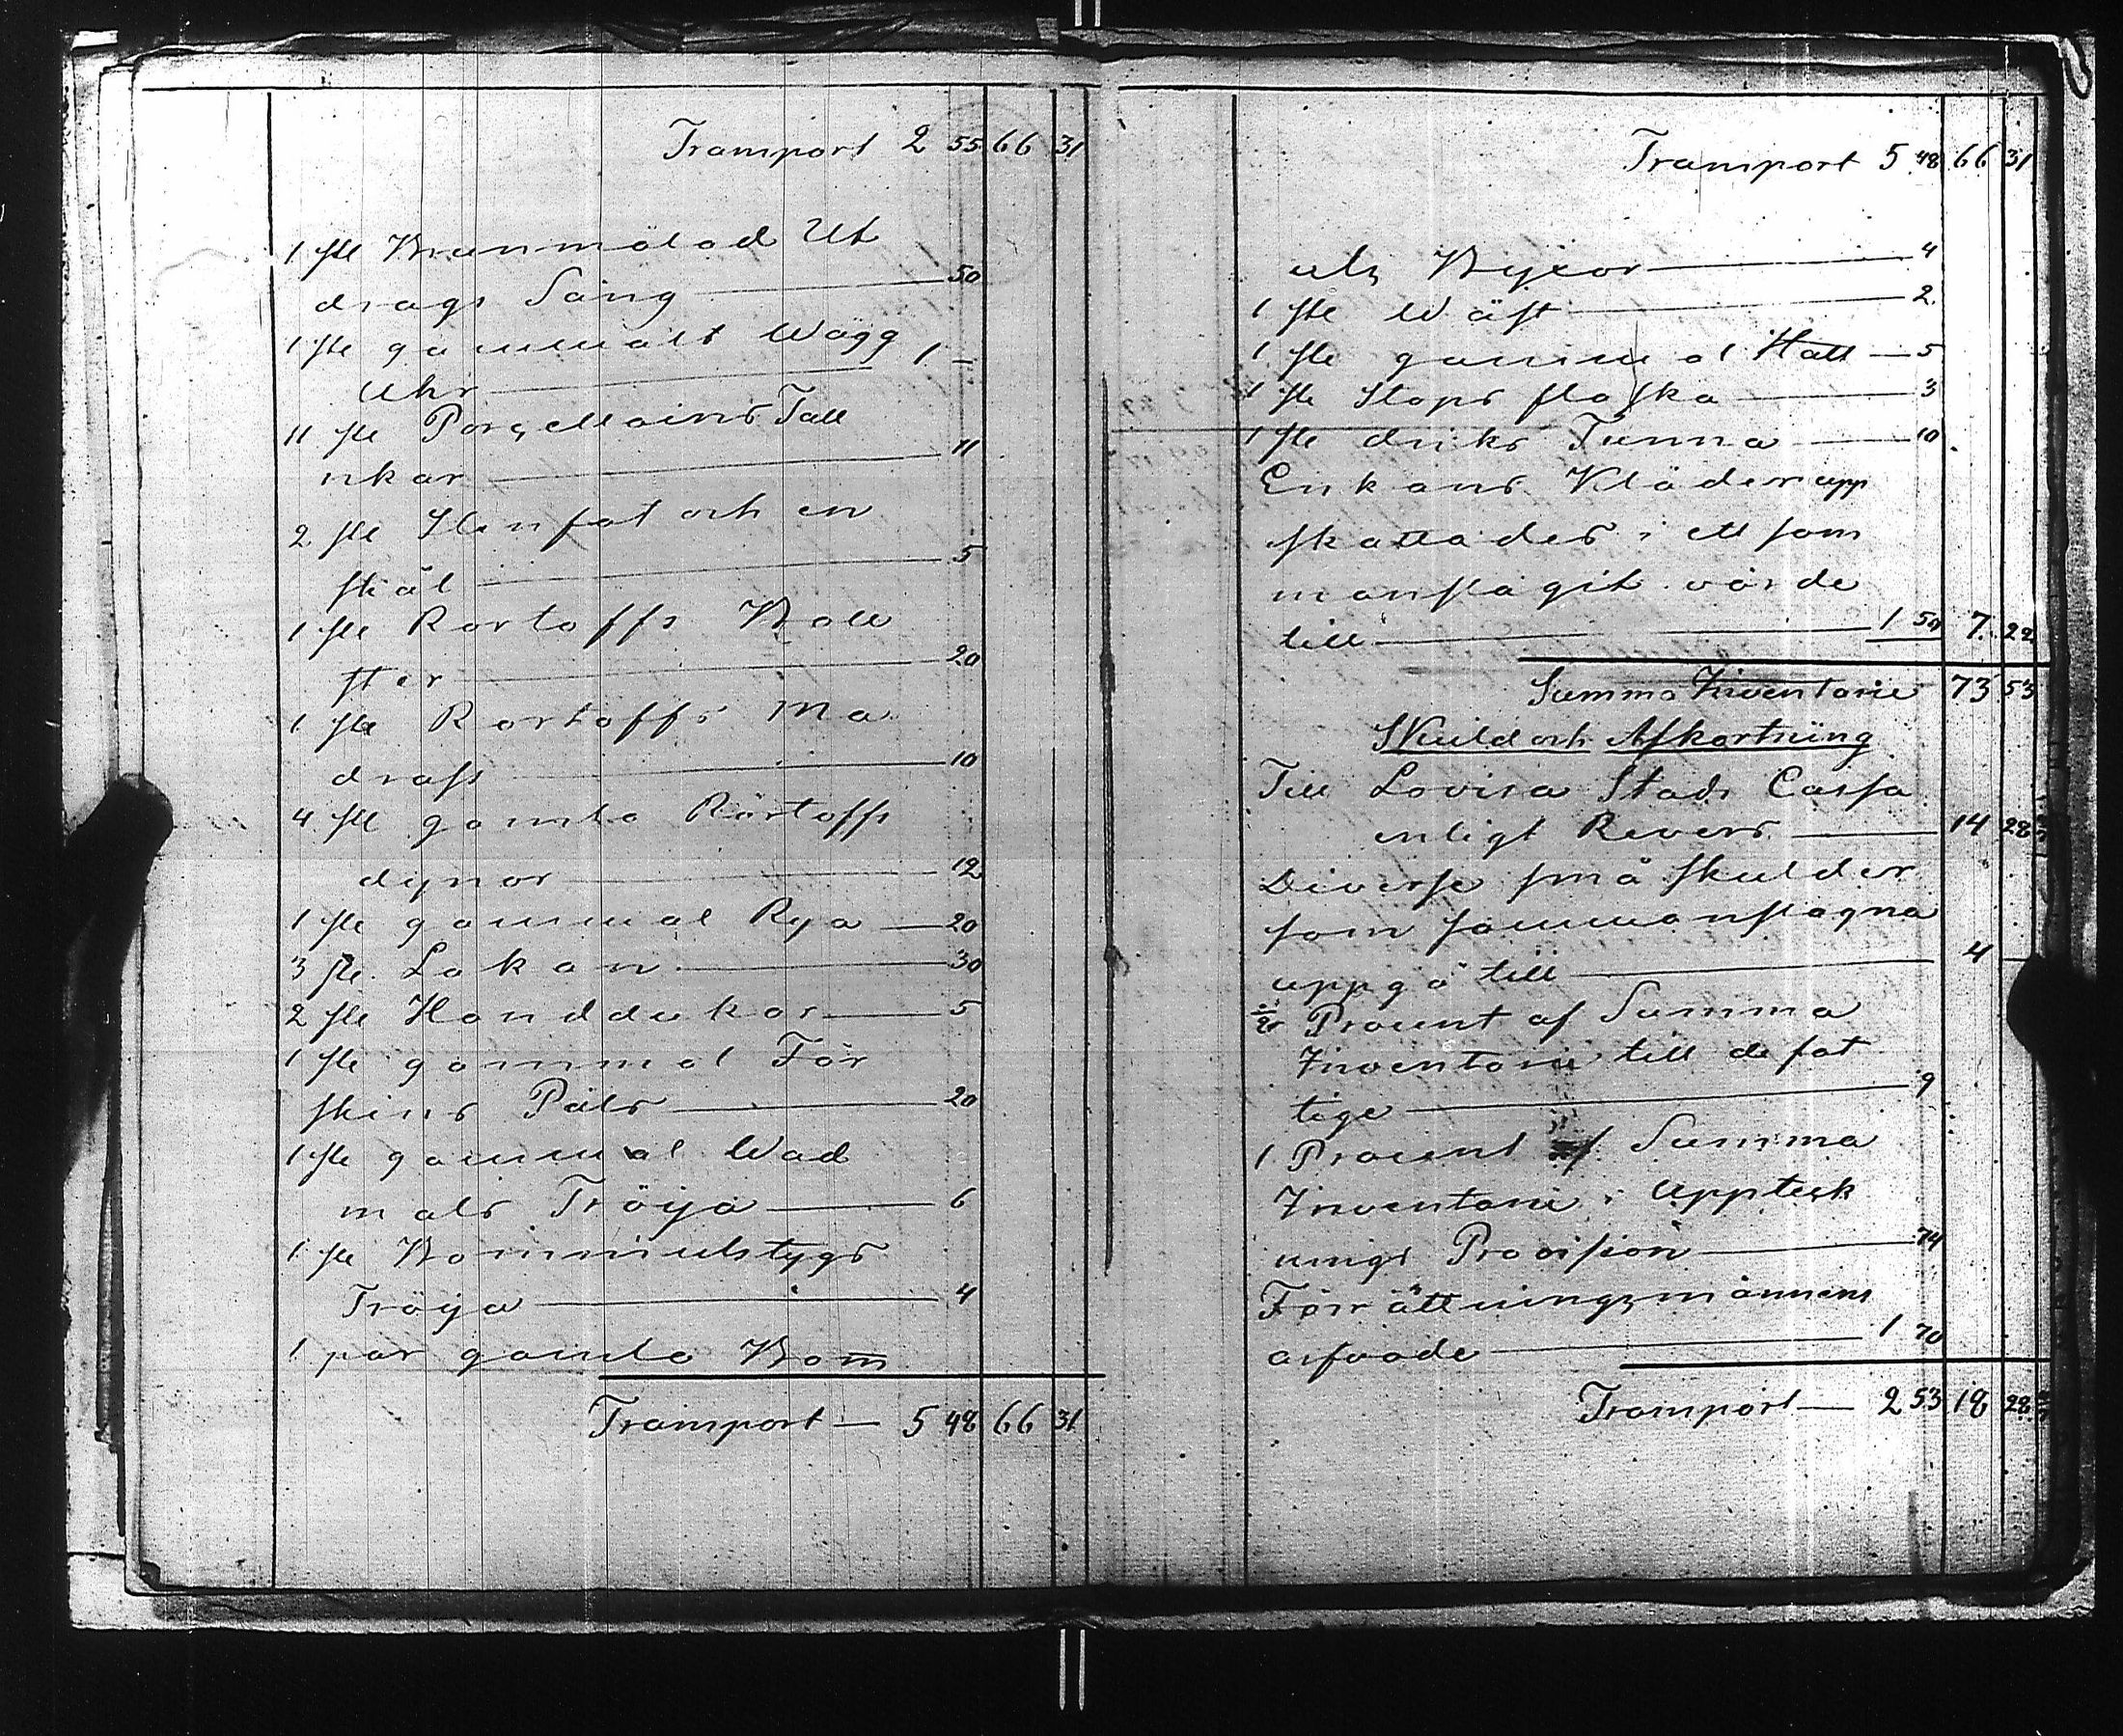 Transport 2 55 66 31
1 st. Brunmålad Ut
drags Säng 50
1 st. gammalt Wägg
Uhr 1 -
11 st. Porcellains Tall
rikar 11
2 st. Stenfat och en
skål 5
1 st. Rortoffs Boll
ster 20
1 st. Rortoffs Ma
drass 10
4 st. gamla Rortoffs
dynor 12
1 st. gammal Rya 20
3 st. Lakan 30
2 st. Handdukar 5
1 st. gammal Får
skins Päls 20
1 st. gammal Wad
mals Tröya 6
1 st. Bommulstygs
Tröya 4
1 par gamla Bom
Transport 5 48 66 31
Transport 5 48 66 31
uls Byxor 4
1 st. Wäst 2
1 st. gammal Hatt 5
1 st. Stops flaska 3
1 st. driks Tunna 10
Enkans Kläder upp
skattades i ett sam
manslagit värde
till 1 50 7 22
Summa Inventarie 73 53
Skuld och Afkortning
Till Lovisa Stads Cassa
enligt Revers 14 28
Diverse små skulder
som sammanslagna
uppgå till 4
Procent af Summa
Inventarie till de fat
tige 9
1 Procent af Summa
Inventarie i Uppteck
nings Provision 74
Förrättningsmännens
arfvode 1 70
Transport 2 53 18 28